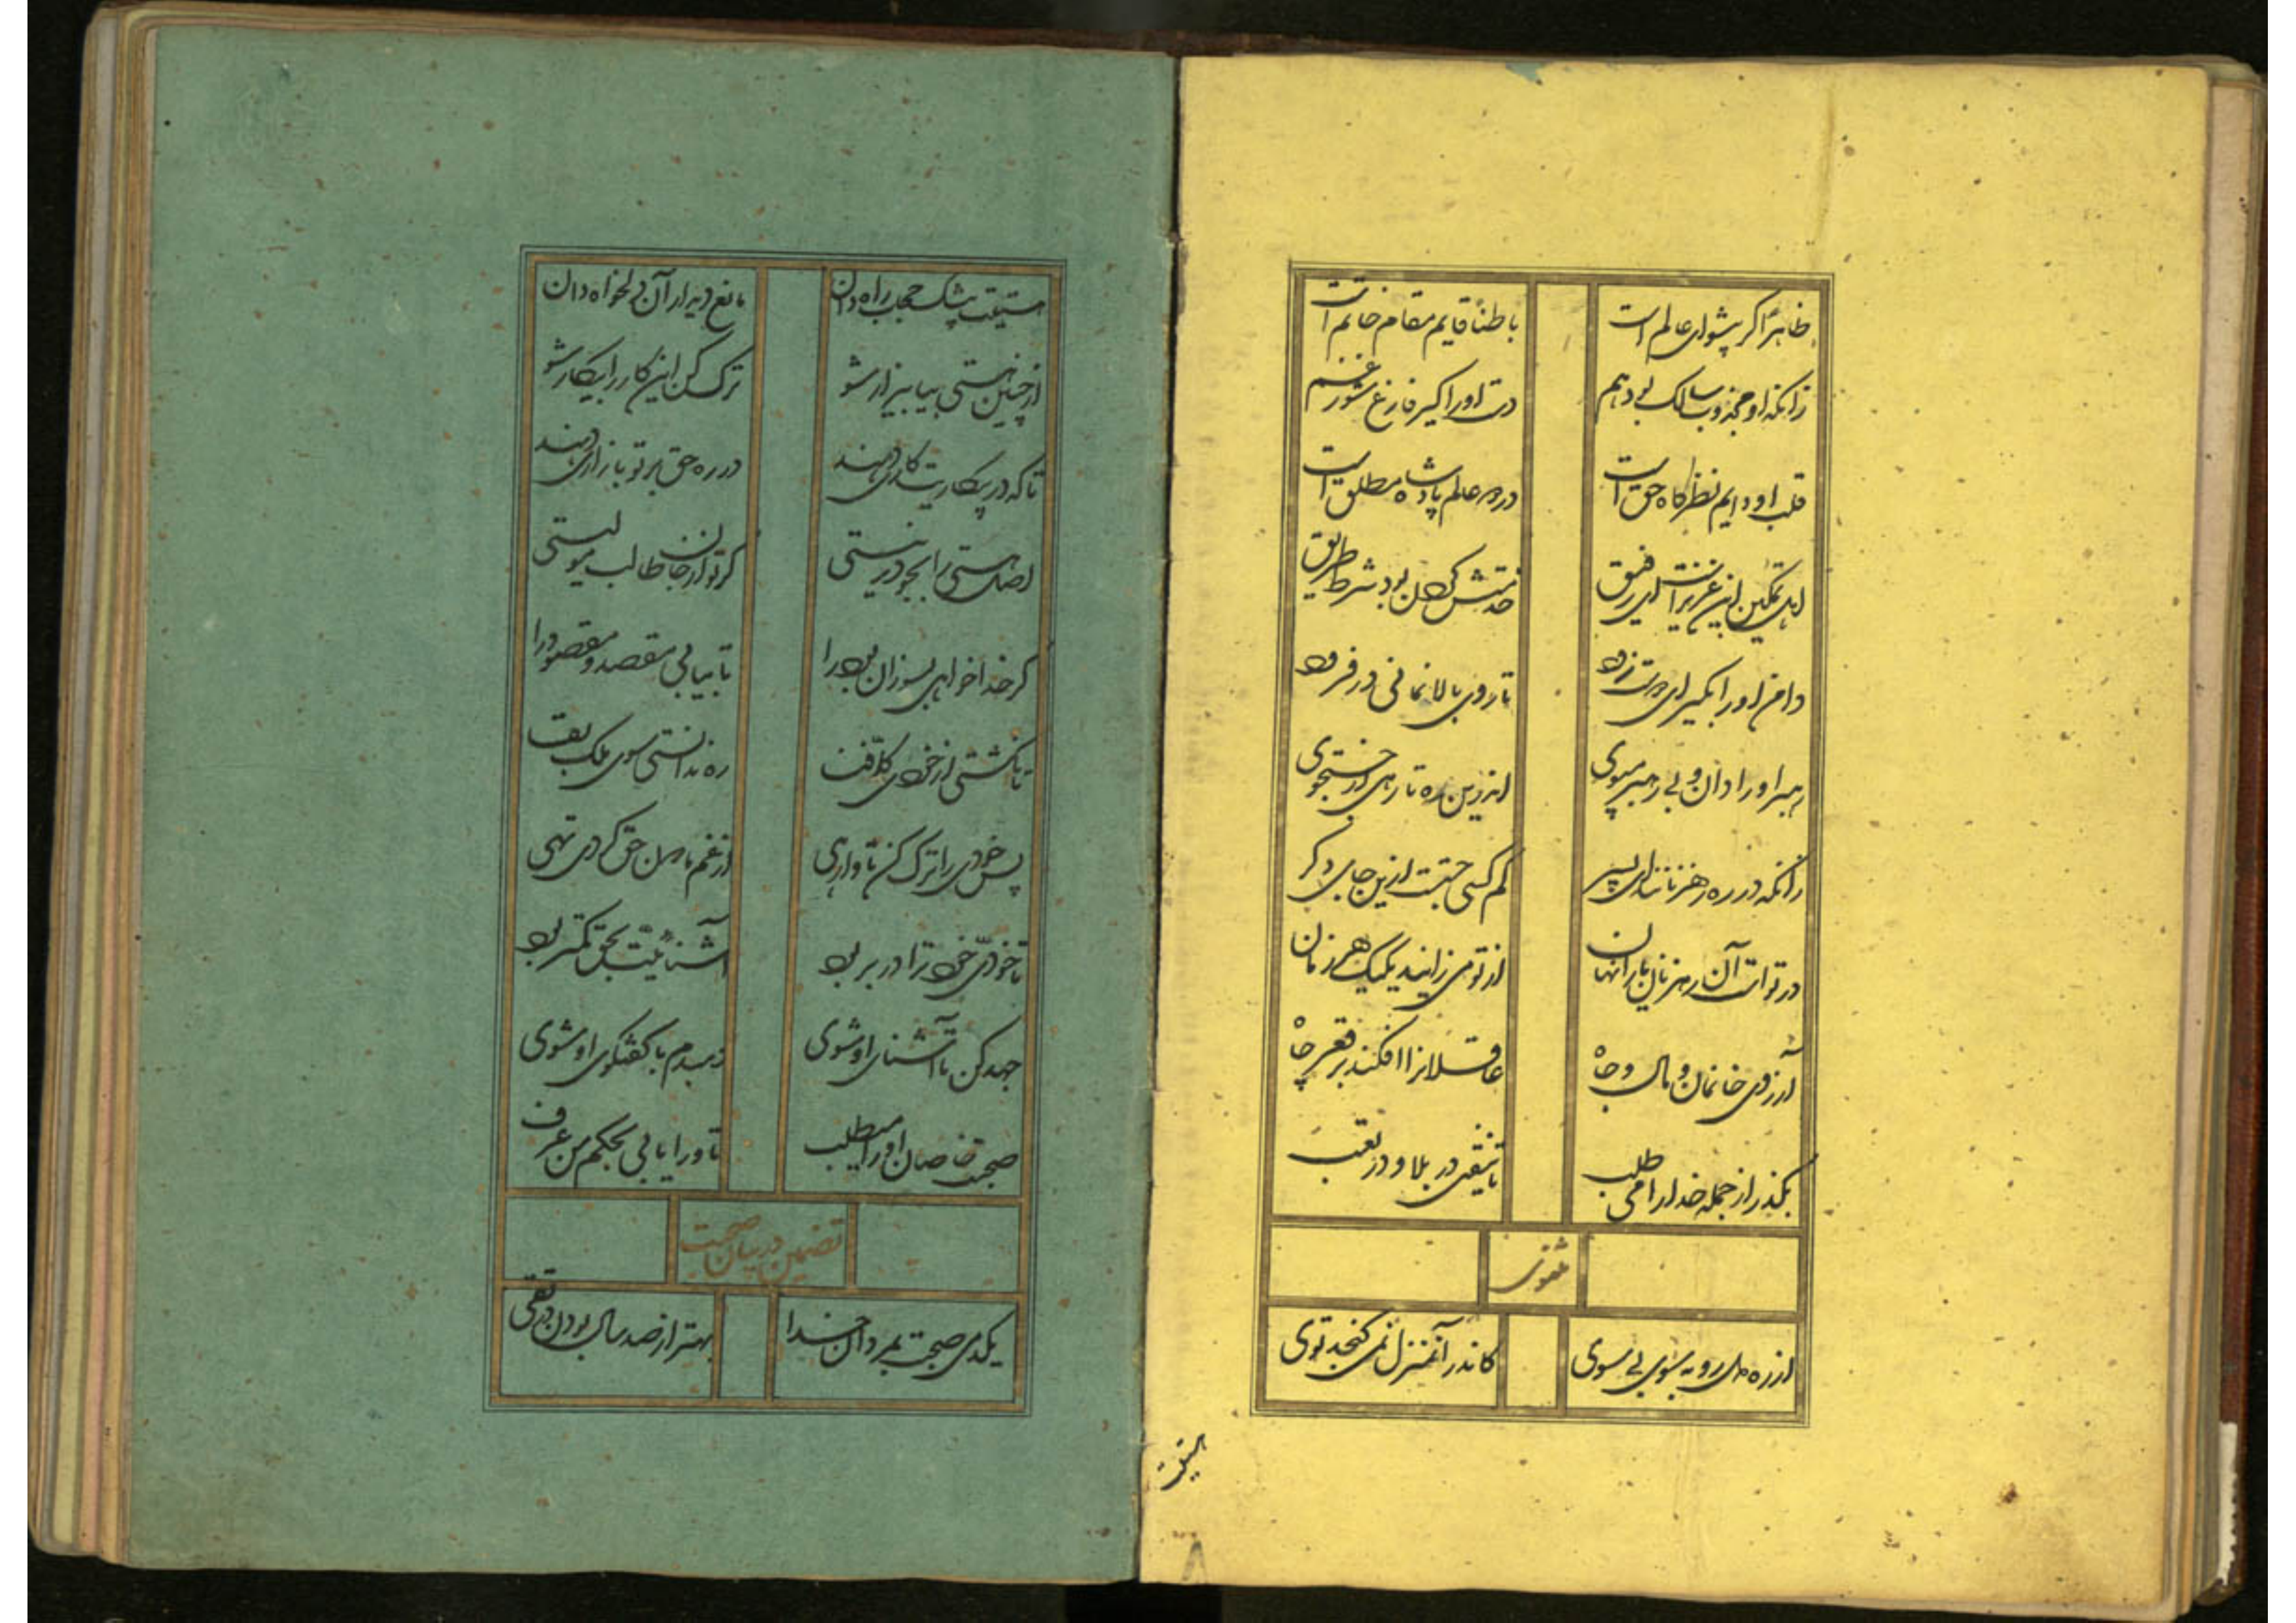 ظاهرا کر پیشوای عالم است
باطنا قایم مقام خاتم است
زانکه او مجذوب سالک بی دهم
دست او را کیر فارغ شو ز غم
قلب او دایم نظرکاه حق است
در دو عالم پادشاه مطلق است
اهل تمکین این عزیز است ای رفیق
خدمتش کردن بود شرط طریق
دامن او را بکیر ای زود
تا روی بالا نمانی در فرود
رهبر او را دان و بی رهبر مپوی
اندرین ره تا رهی از جستجوی
زانکه در ره رهزنانند ای پسر
کم کسی جست ازین جای دکر
در تو است آن رهزنان را نهان
از تو می زایند یک یک هر زمان
آرزوی خانمان و مال و جاه
عاقلانرا افکند بر قعر چاه
بکذر از جمله خدا را می طلب
تا نیفتی در بلا و در تعب
مثنوی
از ره معنی رو به سوی بی سوی
کاندر آن منزل نمی کنجد توی
هستیت
هستیت بیشک حجاب راه دان
مانع دیدار آن دلخواه دان
از چنین هستی بیا بیزار شو
ترک کن این کار را بیکار شو
تا که در بیکاریت کاری دهند
در ره حق بر تو بازاری دهند
اصل هستی را بجو در نیستی
کر تو از جان طالب مولیستی
کر خدا خواهی بسوزان بود را
تا بیابی مقصد و مقصود را
تا نکشتی از خودی کلی فنا
ره ندانستی سوی ملک بقا
پس خودی را ترک کن تا وارهی
از غم نادیدن حق کردی تهی
تا خودی خود ترا در بر بود
آشنائیت بحق کمتر بود
جهد کن تا آشنای او شوی
دمبدم با کفتکوی او شوی
صحبت خاصان او را می طلب
تا ورا یابی بحکم من عرف
تضمین در بیان صحبت
یکدمی صحبت بمردان خدا
بهتر از صد سال بودن در تقی